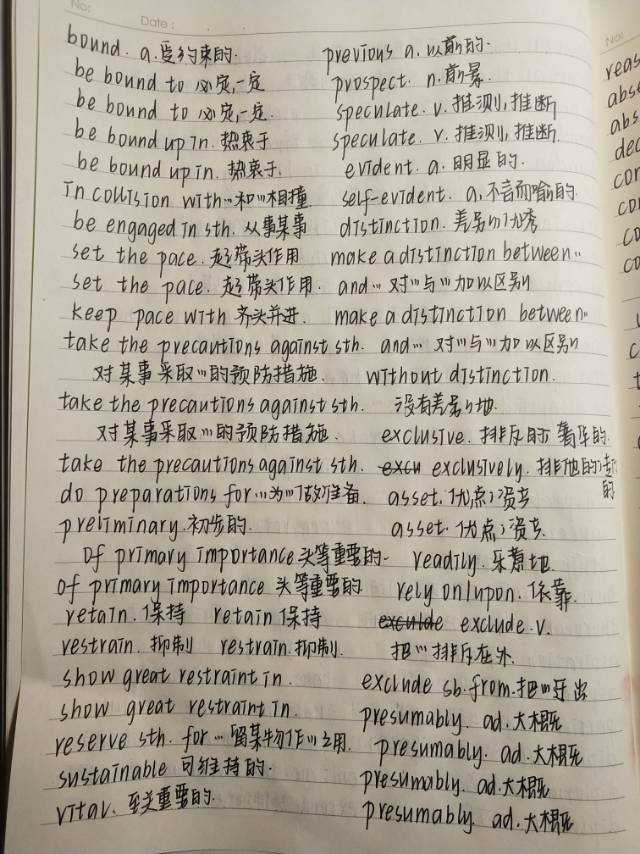 No:
Date:
bound. a.受约束的.
be bound to 必定,一定
be bound to 必定,一定.
be bound up in. 热衷于
be bound up in. 热衷于.
in collision with…和…相撞.
be engaged in sth. 从事某事
set the pace. 起带头作用
set the pace. 起带头作用.
keep pace with 齐头并进.
take the precautions against sth.
对某事采取…的预防措施.
take the precautions against sth.
对某事采取…的预防措施.
take the precautions against sth.
do preparations for…为…做准备.
preliminary.初步的.
of primary importance 头等重要的.
of primary importance 头等重要的
retain.保持 retain 保持
restrain. 抑制 restrain.抑制.
show great restraint in.
show great restraint in.
reserve sth. for…留某物作…之用.
sustainable 可维持的.
vital. 至关重要的.
previous a. 以前的.
prospect. n.前景.
speculate. v. 推测,推断
speculate. v. 推测,推断.
evident. a. 明显的.
self-evident. a.不言而喻的.
distinction. 差别;优秀
make a distinction between…
and… 对…与…加以区别
make a distinction between…
and… 对…与…加以区别
without distinction.
没有差别地.
exclusive. 排斥的;奢华的.
excu exclusively. 排他的;
的
asset.优点;资产
asset. 优点;资产.
readily.乐意地.
rely on/upon.依靠.
exculde exclude.v.
把…排斥在外.
exclude sb.from.把…开出
presumably. ad.大概
presumably. ad.大概
presumably. ad.大概
presumably. ad.大概
No:
reas
abse
abs
dec
con
con
co
co